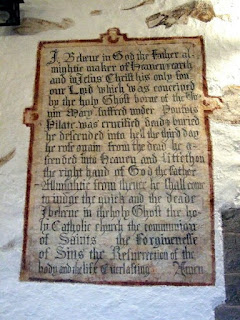 I Beleue in God the Father al
mightie maker of Heauen & earth
and in Jesus Christ his only son
our Lord which was conceiued
by the holy Ghost borne of the Vir
gin Mary suffred under Pontius
Pilate was crucified dead & buried
he descended into hell the third day
he rose again from the dead he a
scended into Heauen and sitteth on
the right hand of God the father
Allmightie from thence he shall come
to iudge the quick and the deade
I beleue in the holy Ghost the ho
ly Catholic church the communion
of Saints the Forgiuenesse
of Sins the Resurrection of the
body and the life euerlasting Amen